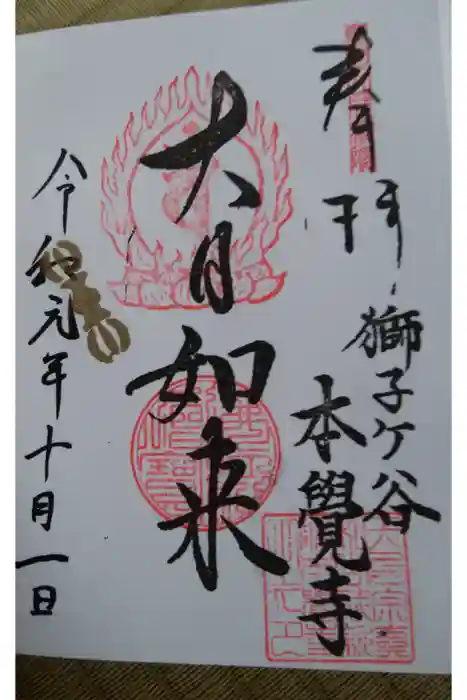 奉拝
獅子ケ谷
本覺寺
大日如来
令和元年十月一日